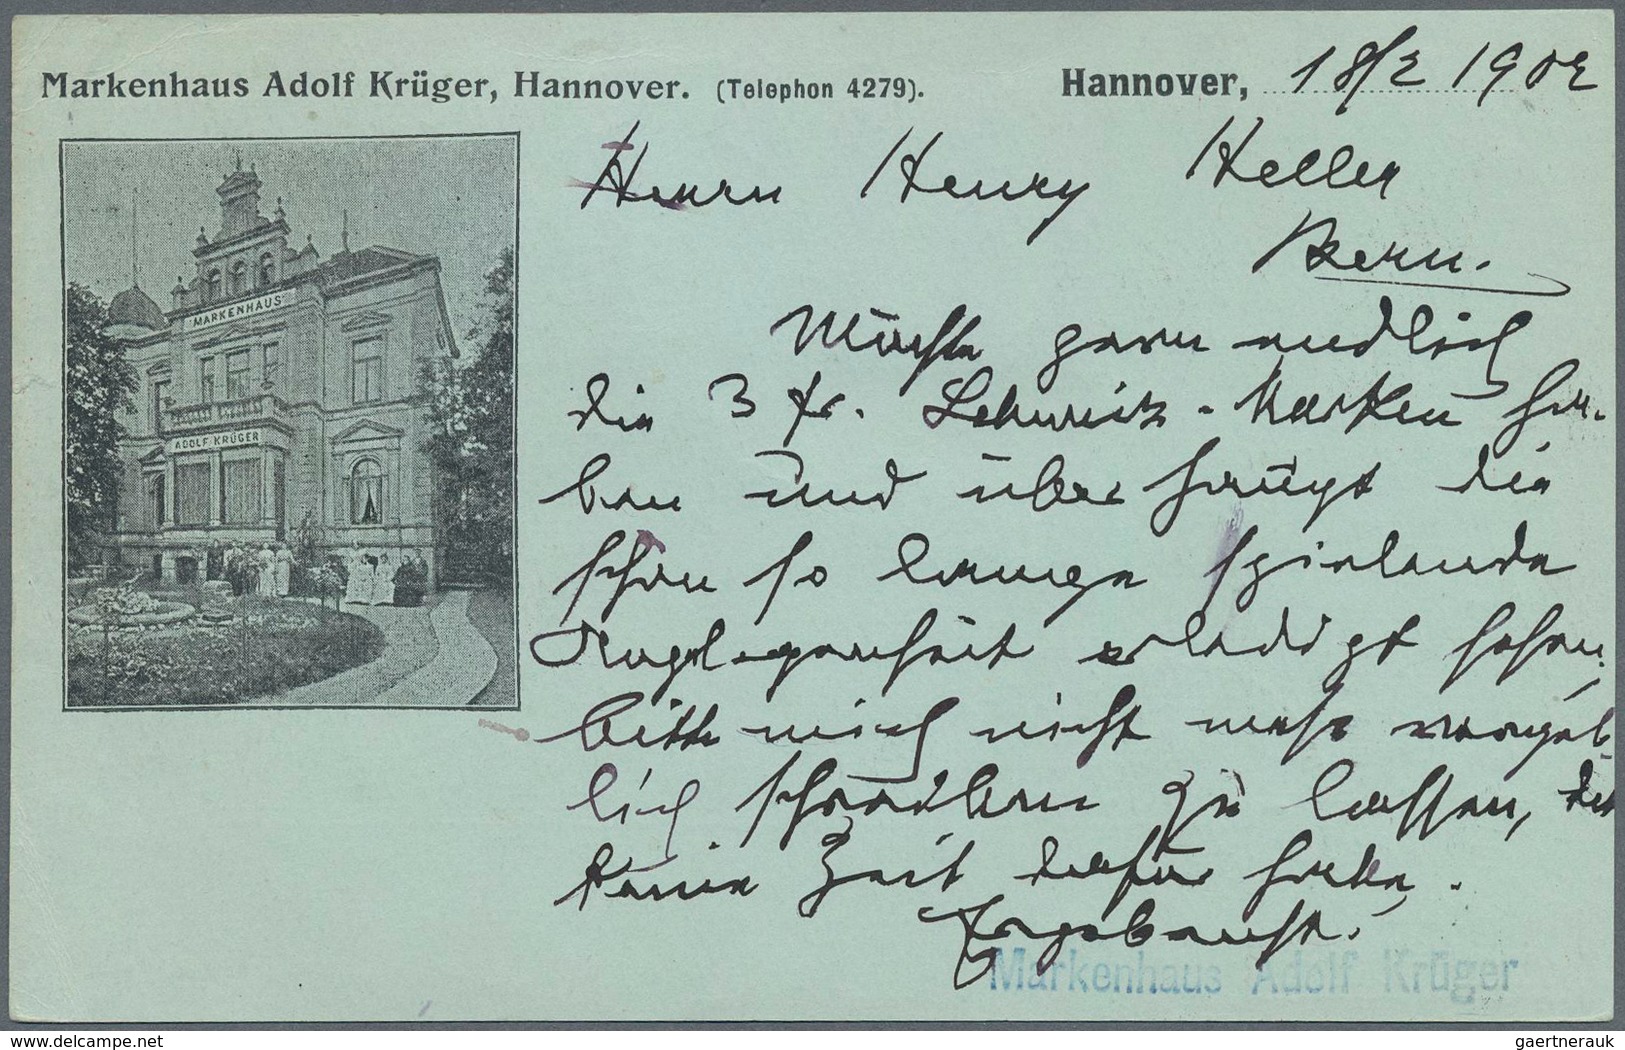 Markenhaus Adolf Krüger, Hannover. (Telephon 4279).
Hannover, 18/2 1902
Herrn Henry Heller
Bern.
MARKENHAUS
ADOLF KRÜGER
Möchte gern endlich
die 3 fr. Schweiz-Marken ha-
ben und überhaupt die
schon so lange spielende
Angelegenheit erledigt sehen,
bitte mich nicht mehr vergeb-
lich schreiben zu lassen, da
keine Zeit dafür habe.
Ergebenst.
Markenhaus Adolf Krüger
www.delcampe.net
gaertnerauk